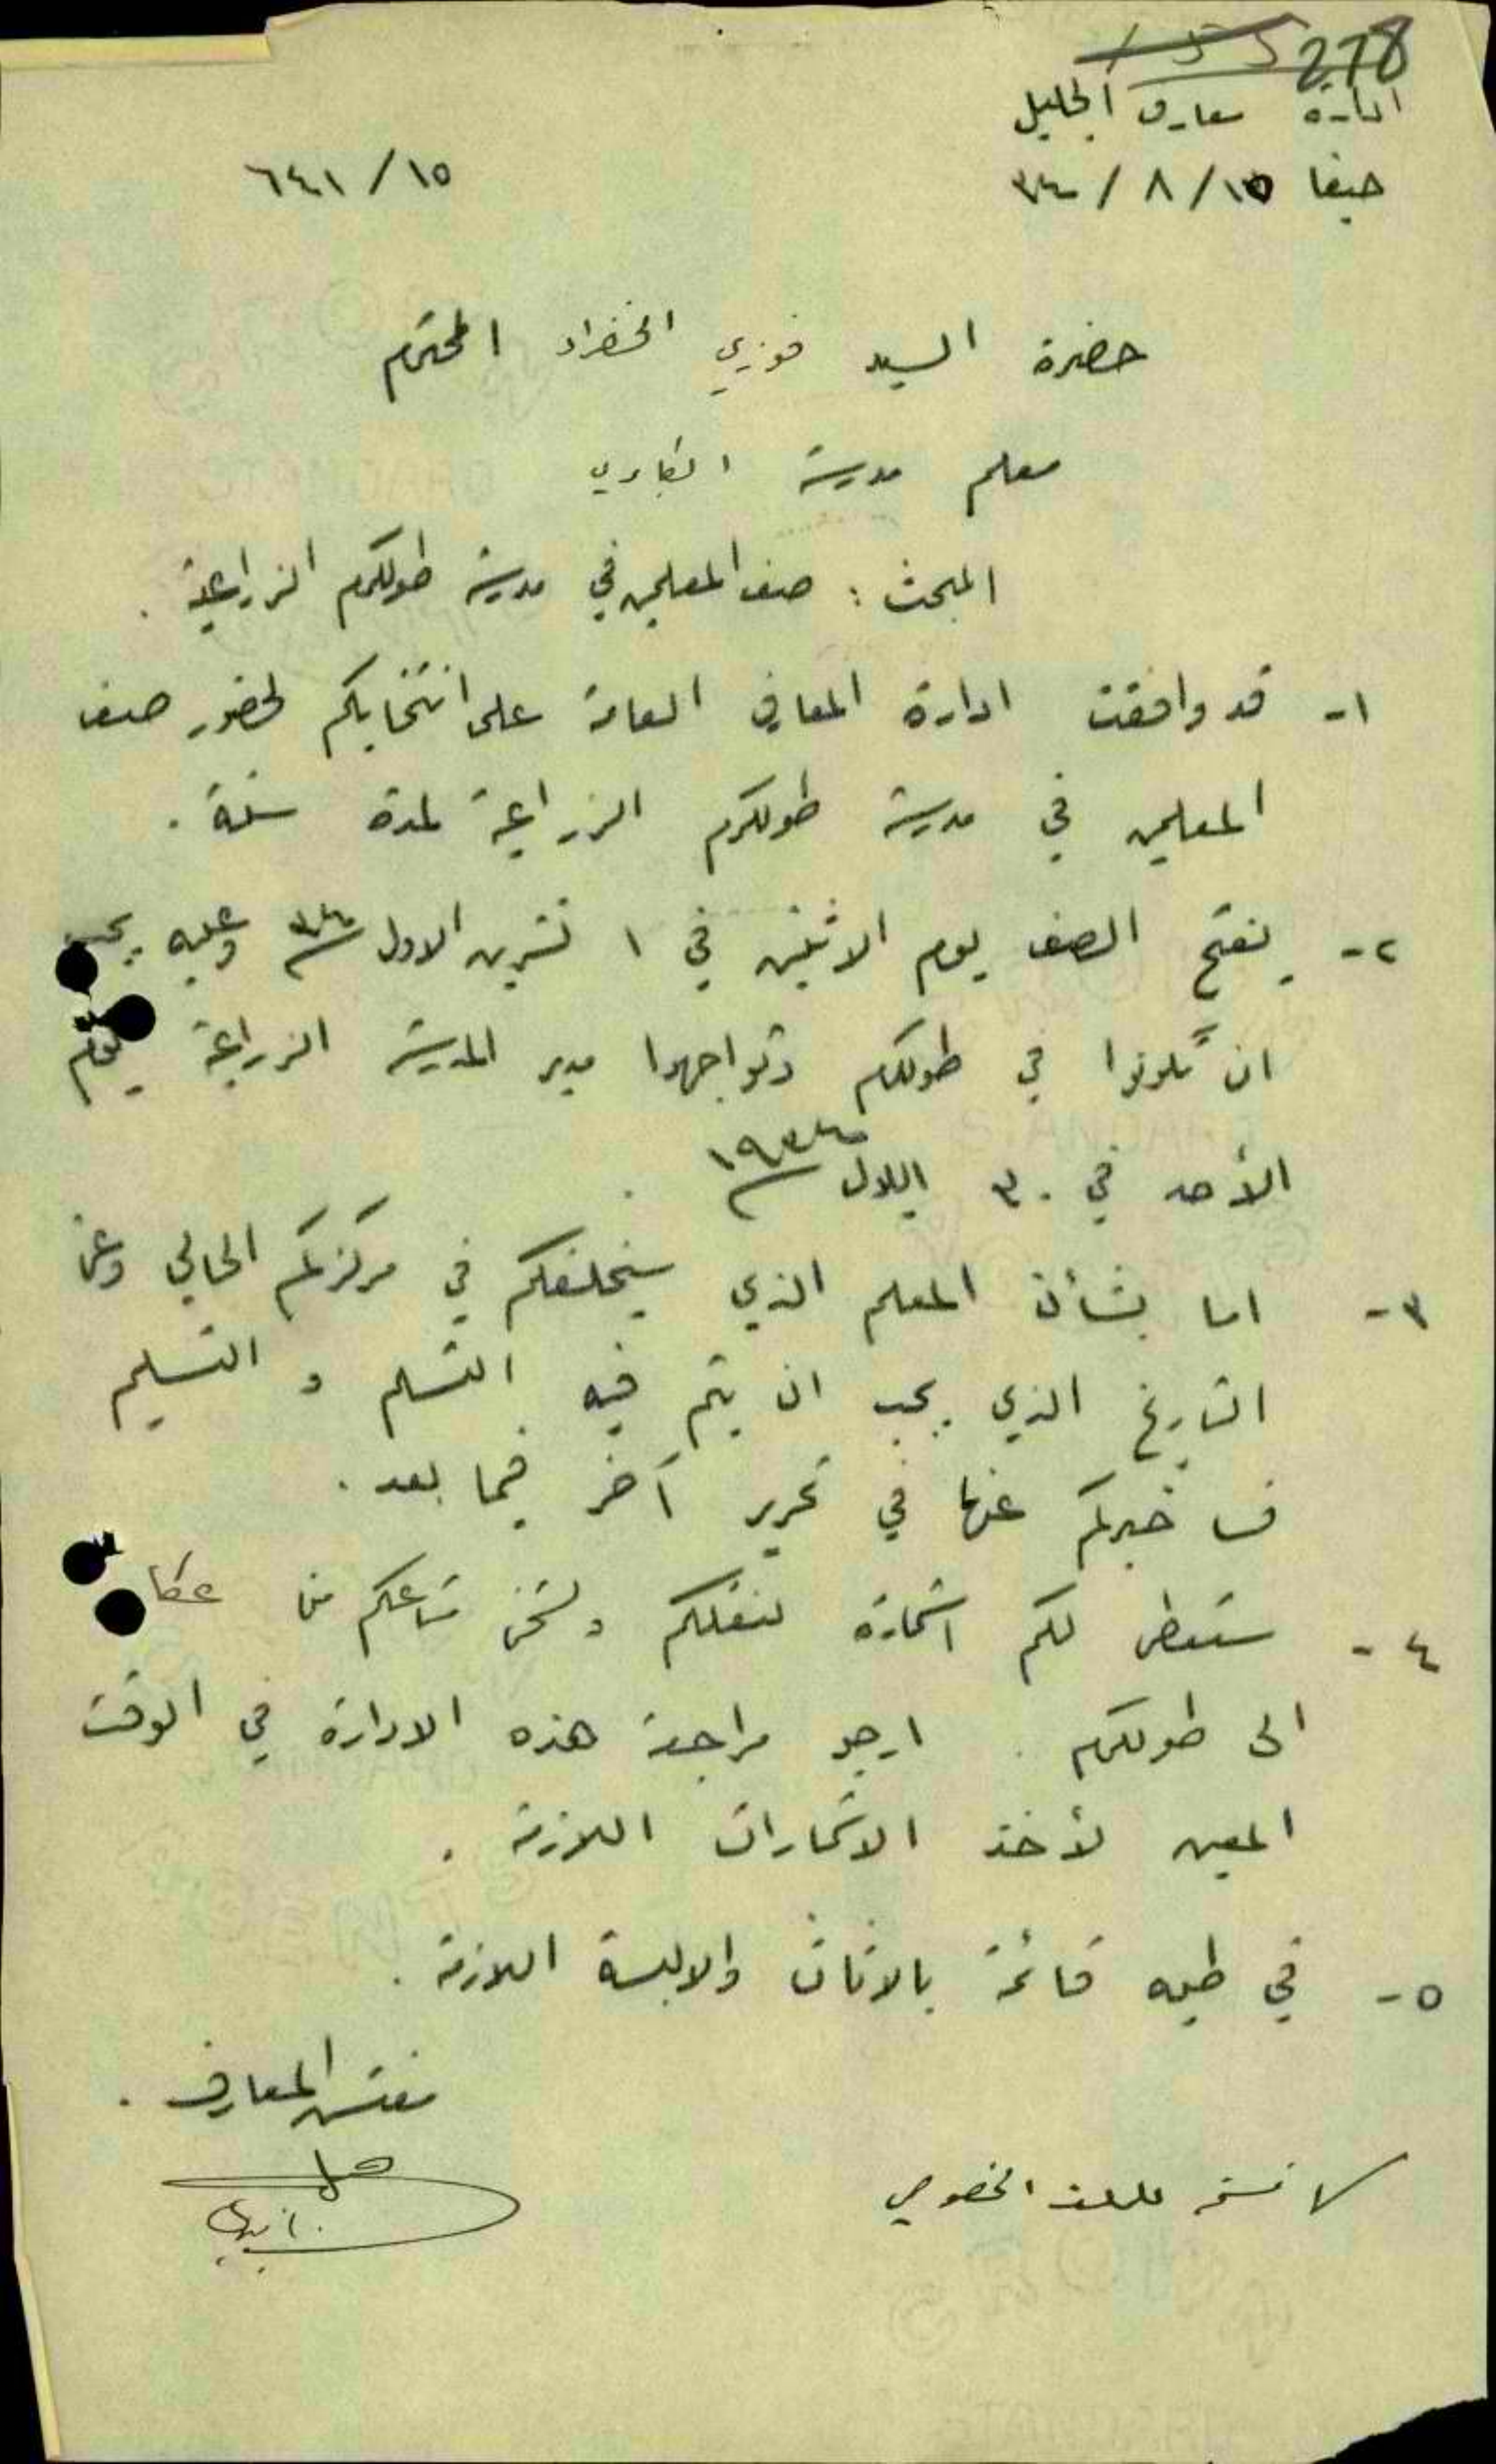 278
ادارة معارف الجليل
حيفا ١٥/٨/٣٤
٦٤١/١٥
حضرة السيد فوزي الخضراء المحترم
معلم مدرسة الكابري
المبحث: صف المعلمين في مدرسة طولكرم الزراعية.
١- قد وافقت ادارة المعارف العامة على انتخابكم لحضور صف
المعلمين في مدرسة طولكرم الزراعية لمدة سنة.
٢- يفتح الصف يوم الاثنين في ١ تشرين الاول ٣٤ وعليه يجب
ان تكونوا في طولكرم وتواجهوا مدير المدرسة الزراعية يوم
الأحد في ٣٠ ايلول ١٩٣٤.
٣- اما بشأن المعلم الذي سيخلفكم في مركزكم الحالي وعن
التاريخ الذي يجب ان يتم فيه التسلم والتسليم
فسأخبركم عنها في تحرير آخر فيما بعد.
٤- ستعطى لكم استمارة لنقلكم ولشحن متاعكم من عكا
الى طولكرم. ارجو مراجعة هذه الادارة في الوقت
المعين لأخذ الاستمارات اللازمة.
٥- في طيه قائمة بالاثاث والالبسة اللازمة.
مفتش المعارف.
نسخة للملف الخصوصي